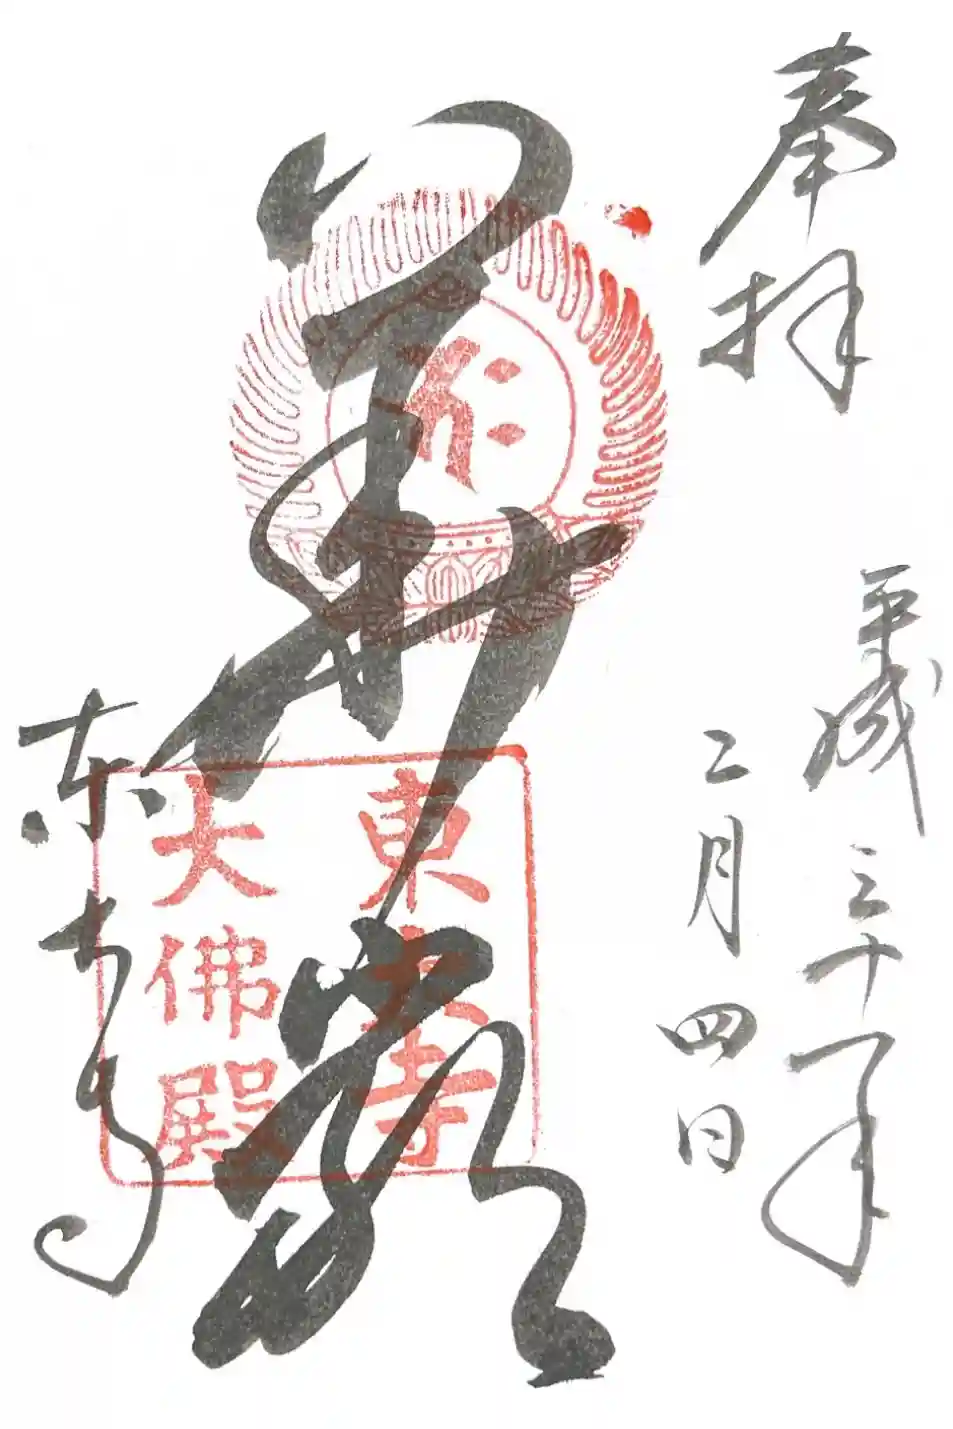 奉拝
平成三十年
二月四日
華嚴
東大寺
大佛殿
東大寺